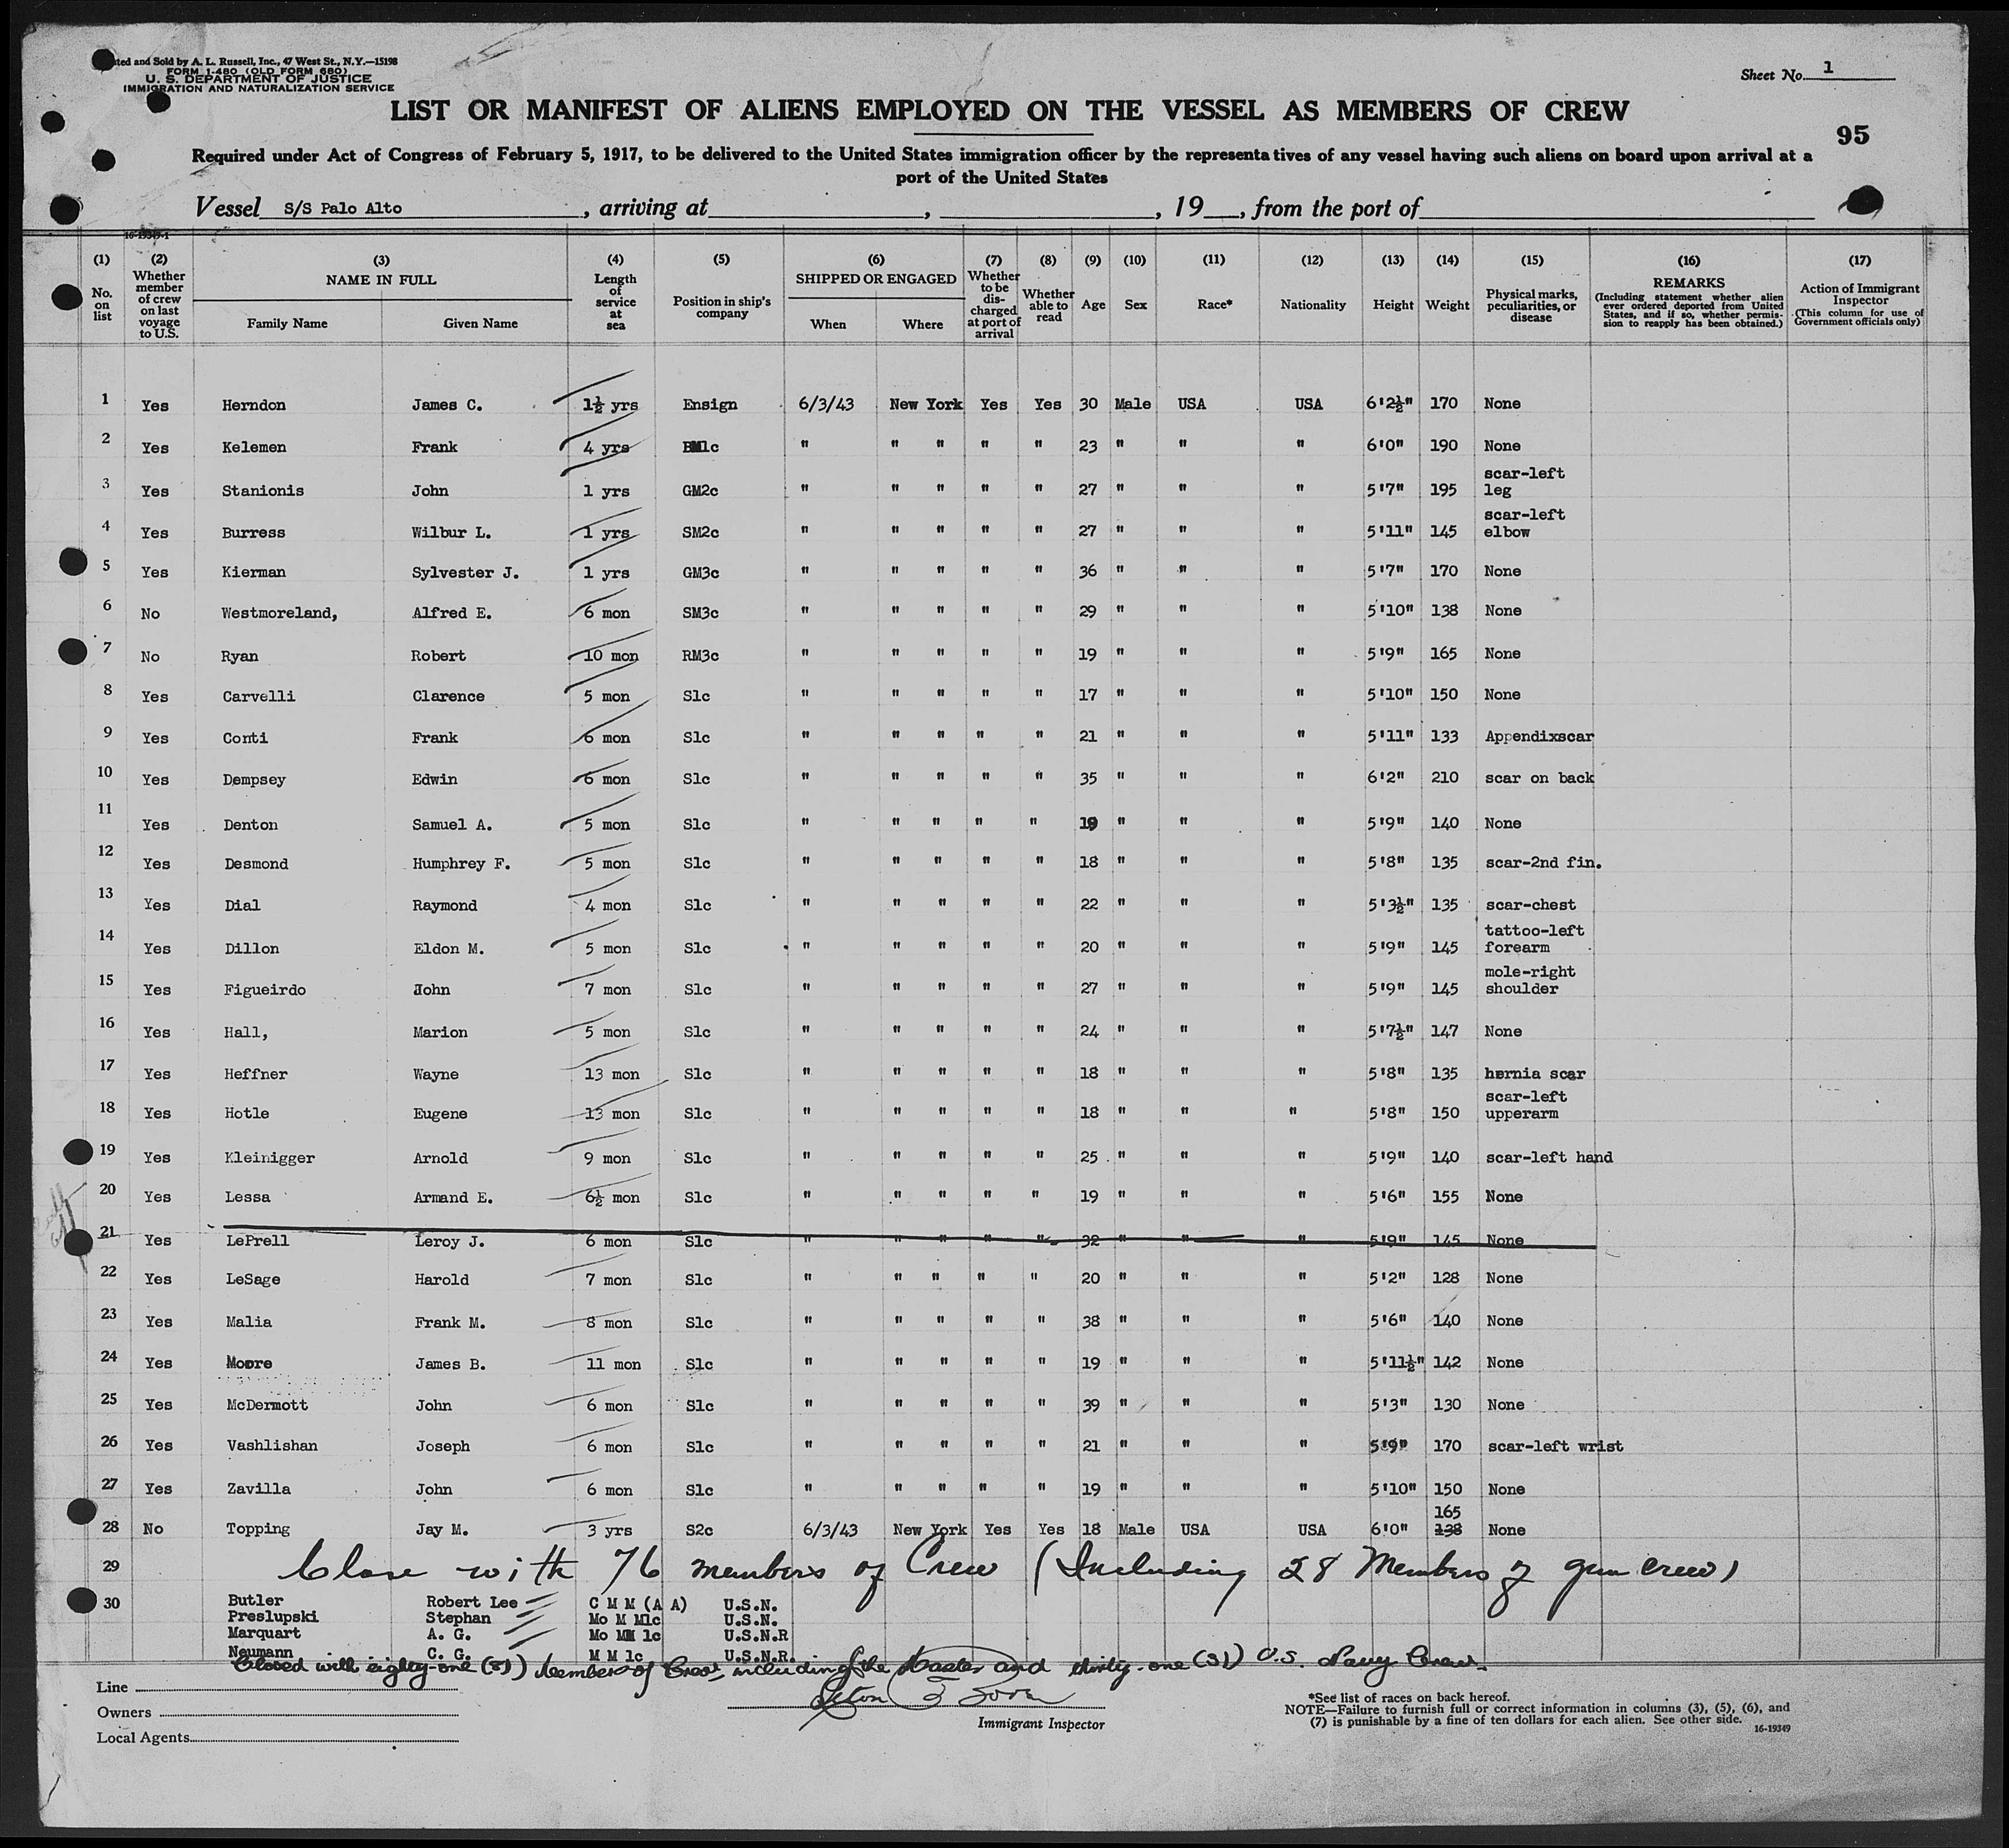 ted and Sold by A. L. Russell, Inc., 47 West St., N.Y.—15198
FORM I-480 (OLD FORM 680)
U. S. DEPARTMENT OF JUSTICE
IMMIGRATION AND NATURALIZATION SERVICE
Sheet No. 1
LIST OR MANIFEST OF ALIENS EMPLOYED ON THE VESSEL AS MEMBERS OF CREW
95
Required under Act of Congress of February 5, 1917, to be delivered to the United States immigration officer by the representatives of any vessel having such aliens on board upon arrival at a
port of the United States
Vessel S/S Palo Alto, arriving at , , 19 , from the port of
(1) No. on list
(2) Whether member of crew on last voyage to U.S.
(3) NAME IN FULL Family Name Given Name
(4) Length of service at sea
(5) Position in ship's company
(6) SHIPPED OR ENGAGED When Where
(7) Whether to be discharged at port of arrival
(8) Whether able to read
(9) Age
(10) Sex
(11) Race*
(12) Nationality
(13) Height
(14) Weight
(15) Physical marks, peculiarities, or disease
(16) REMARKS (Including statement whether alien ever ordered deported from United States, and if so, whether permission to reapply has been obtained.)
(17) Action of Immigrant Inspector (This column for use of Government officials only)
1 Yes Herndon James C. 1½ yrs Ensign 6/3/43 New York Yes Yes 30 Male USA USA 6'2½" 170 None
2 Yes Kelemen Frank 4 yrs BM1c " " " " " 23 " " " 6'0" 190 None
3 Yes Stanionis John 1 yrs GM2c " " " " " 27 " " " 5'7" 195 scar-left leg
4 Yes Burress Wilbur L. 1 yrs SM2c " " " " " 27 " " " 5'11" 145 scar-left elbow
5 Yes Kierman Sylvester J. 1 yrs GM3c " " " " " 36 " " " 5'7" 170 None
6 No Westmoreland, Alfred E. 6 mon SM3c " " " " " 29 " " " 5'10" 138 None
7 No Ryan Robert 10 mon RM3c " " " " " 19 " " " 5'9" 165 None
8 Yes Carvelli Clarence 5 mon S1c " " " " " 17 " " " 5'10" 150 None
9 Yes Conti Frank 6 mon S1c " " " " " 21 " " " 5'11" 133 Appendixscar
10 Yes Dempsey Edwin 6 mon S1c " " " " " 35 " " " 6'2" 210 scar on back
11 Yes Denton Samuel A. 5 mon S1c " " " " " 19 " " " 5'9" 140 None
12 Yes Desmond Humphrey F. 5 mon S1c " " " " " 18 " " " 5'8" 135 scar-2nd fin.
13 Yes Dial Raymond 4 mon S1c " " " " " 22 " " " 5'3½" 135 scar-chest
14 Yes Dillon Eldon M. 5 mon S1c " " " " " 20 " " " 5'9" 145 tattoo-left forearm
15 Yes Figueirdo John 7 mon S1c " " " " " 27 " " " 5'9" 145 mole-right shoulder
16 Yes Hall, Marion 5 mon S1c " " " " " 24 " " " 5'7½" 147 None
17 Yes Heffner Wayne 13 mon S1c " " " " " 18 " " " 5'8" 135 hernia scar
18 Yes Hotle Eugene 13 mon S1c " " " " " 18 " " " 5'8" 150 scar-left upperarm
19 Yes Kleinigger Arnold 9 mon S1c " " " " " 25 " " " 5'9" 140 scar-left hand
20 Yes Lessa Armand E. 6½ mon S1c " " " " " 19 " " " 5'6" 155 None
21 Yes LePrell Leroy J. 6 mon S1c " " " " " 32 " " " 5'9" 145 None
22 Yes LeSage Harold 7 mon S1c " " " " " 20 " " " 5'2" 128 None
23 Yes Malia Frank M. 8 mon S1c " " " " " 38 " " " 5'6" 140 None
24 Yes Moore James B. 11 mon S1c " " " " " 19 " " " 5'11½" 142 None
25 Yes McDermott John 6 mon S1c " " " " " 39 " " " 5'3" 130 None
26 Yes Vashlishan Joseph 6 mon S1c " " " " " 21 " " " 5'9" 170 scar-left wrist
27 Yes Zavilla John 6 mon S1c " " " " " 19 " " " 5'10" 150 None
28 No Topping Jay M. 3 yrs S2c 6/3/43 New York Yes Yes 18 Male USA USA 6'0" 165 138 None
29 Close with 76 members of Crew (Including 28 Members of gun crew)
30 Butler Robert Lee C M M (A A) U.S.N.
Preslupski Stephan Mo M M1c U.S.N.
Marquart A. G. Mo MM 1c U.S.N.R
Neumann C. G. M M 1c U.S.N.R.
Closed with eighty-one (81) Members of Crew, including the Master and thirty-one (31) U.S. Navy Crew.
Line
Owners
Local Agents
Immigrant Inspector
*See list of races on back hereof.
NOTE—Failure to furnish full or correct information in columns (3), (5), (6), and
(7) is punishable by a fine of ten dollars for each alien. See other side.
16-19349